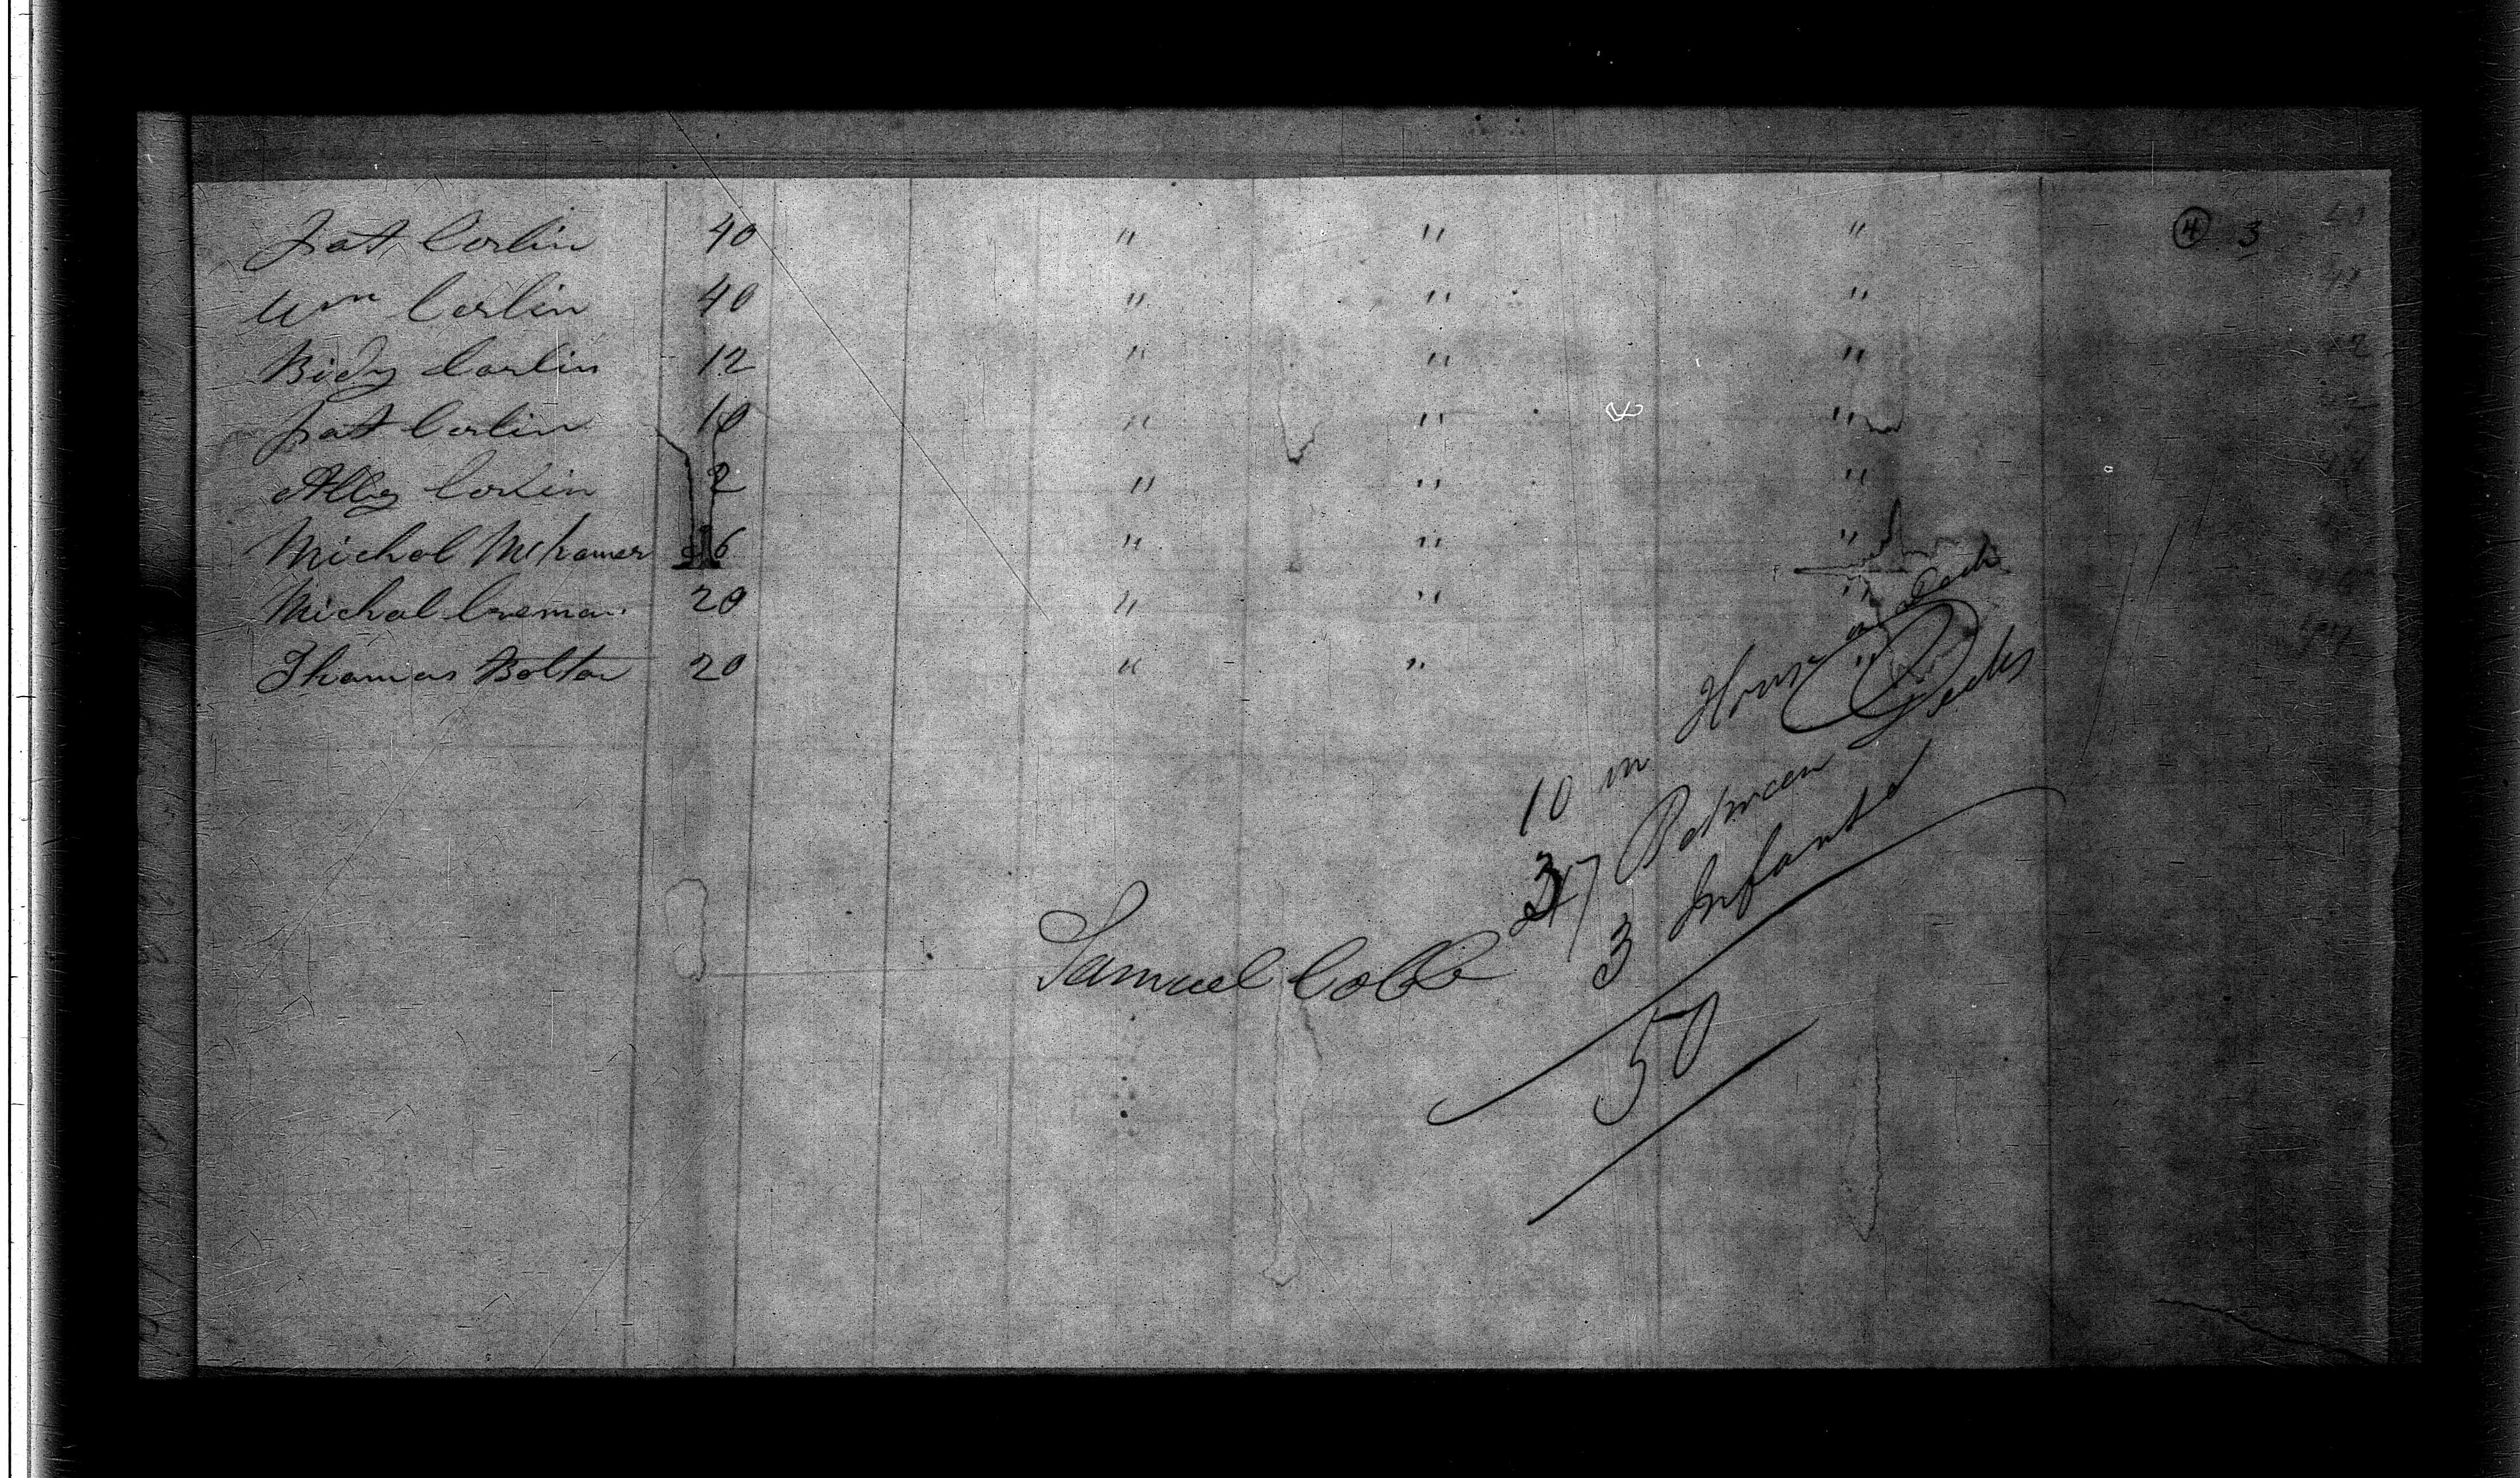 Pat Corlin 40 " " " ④ 3
Wm Corlin 40 " " "
Bidy Corlin 12 " " "
Pat Corlin 10 " " "
Ally Corlin 2 " " "
Michal 6 " " "
Michal 20 " " "
Thomas Bolton 20 " " "
10 in House on Deck
37 Between Decks
3 Infants
Samuel Cobb
50